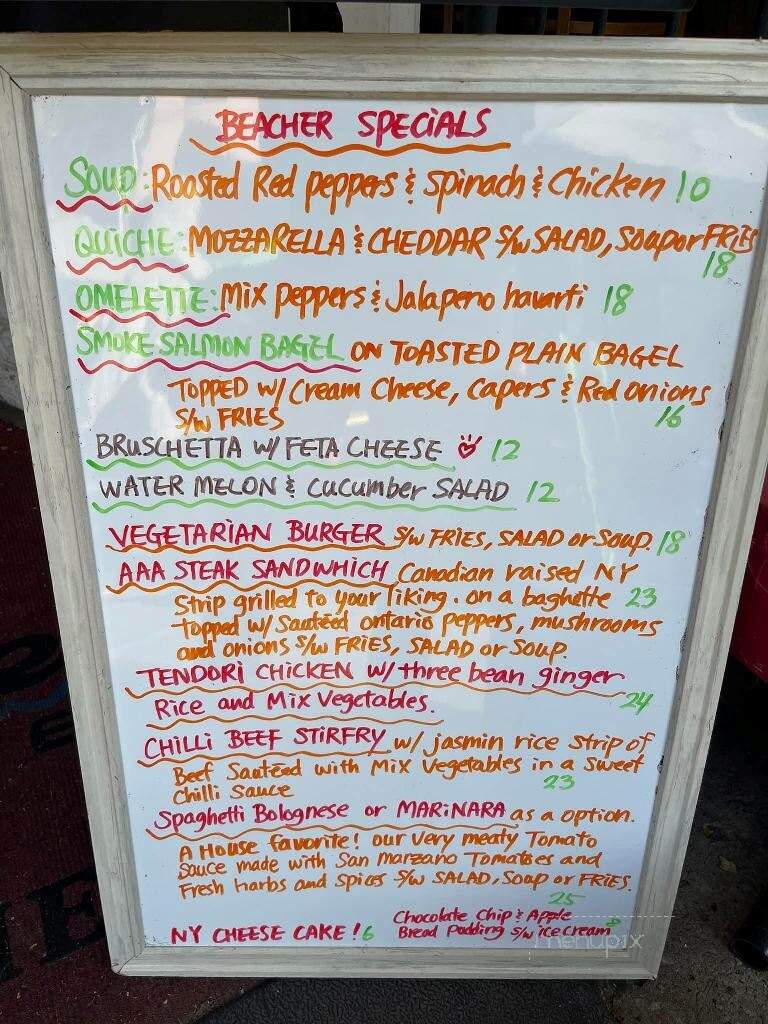 BEACHER SPECIALS
SOUP: Roosted Red peppers & spinach & Chicken 10
QUICHE: MOZZARELLA & CHEDDAR S/w SALAD, Soup or FRIES
18
OMELETTE: Mix peppers & Jalapeno havarti 18
SMOKE SALMON BAGEL ON TOASTED PLAIN BAGEL
TOPPED w/ Cream Cheese, Capers & Red onions
S/w FRIES 16
BRUSCHETTA W/ FETA CHEESE 12
WATER MELON & cucumber SALAD 12
VEGETARIAN BURGER S/w FRIES, SALAD or Soup. 18
AAA STEAK SANDWHICH Canadian raised NY
Strip grilled to your liking. on a baghette 23
topped w/ Sautéed ontario peppers, mushrooms
and onions S/w FRIES, SALAD or Soup.
TENDORI CHICKEN w/ three bean ginger
Rice and Mix Vegetables. 24
CHILLI BEEF STIRFRY w/ jasmin rice Strip of
Beef Sautéed with Mix Vegetables in a Sweet
Chilli Sauce 23
Spaghetti Bolognese or MARINARA as a option.
A House favorite! our very meaty Tomato
Sauce made with San Marzano Tomatoes and
Fresh harbs and Spices S/w SALAD, Soup or FRIES.
25
NY CHEESE CAKE! 6
Chocolate Chip & Apple
Bread Pudding S/w ice Cream 8
menupix